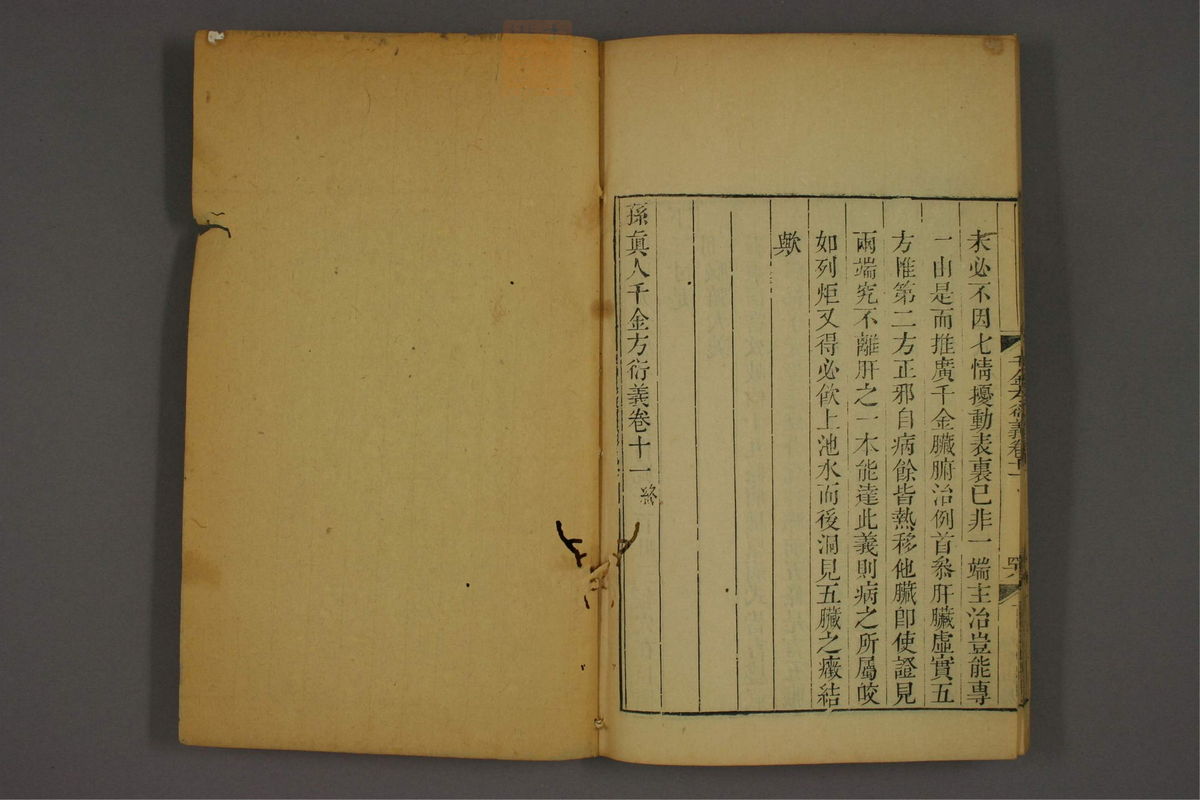 未必不因七情擾動表裏已非一端主治豈能專
一由是而推廣千金臟腑治例首叅肝臟虛實五
方惟第二方正邪自病餘皆熱移他臟卽使證見
兩端究不離肝之一本能達此義則病之所屬皎
如列炬又得必飲上池水而後洞見五臟之癥結
歟
孫眞人千金方衍義卷十一 終
千金方衍義卷十一